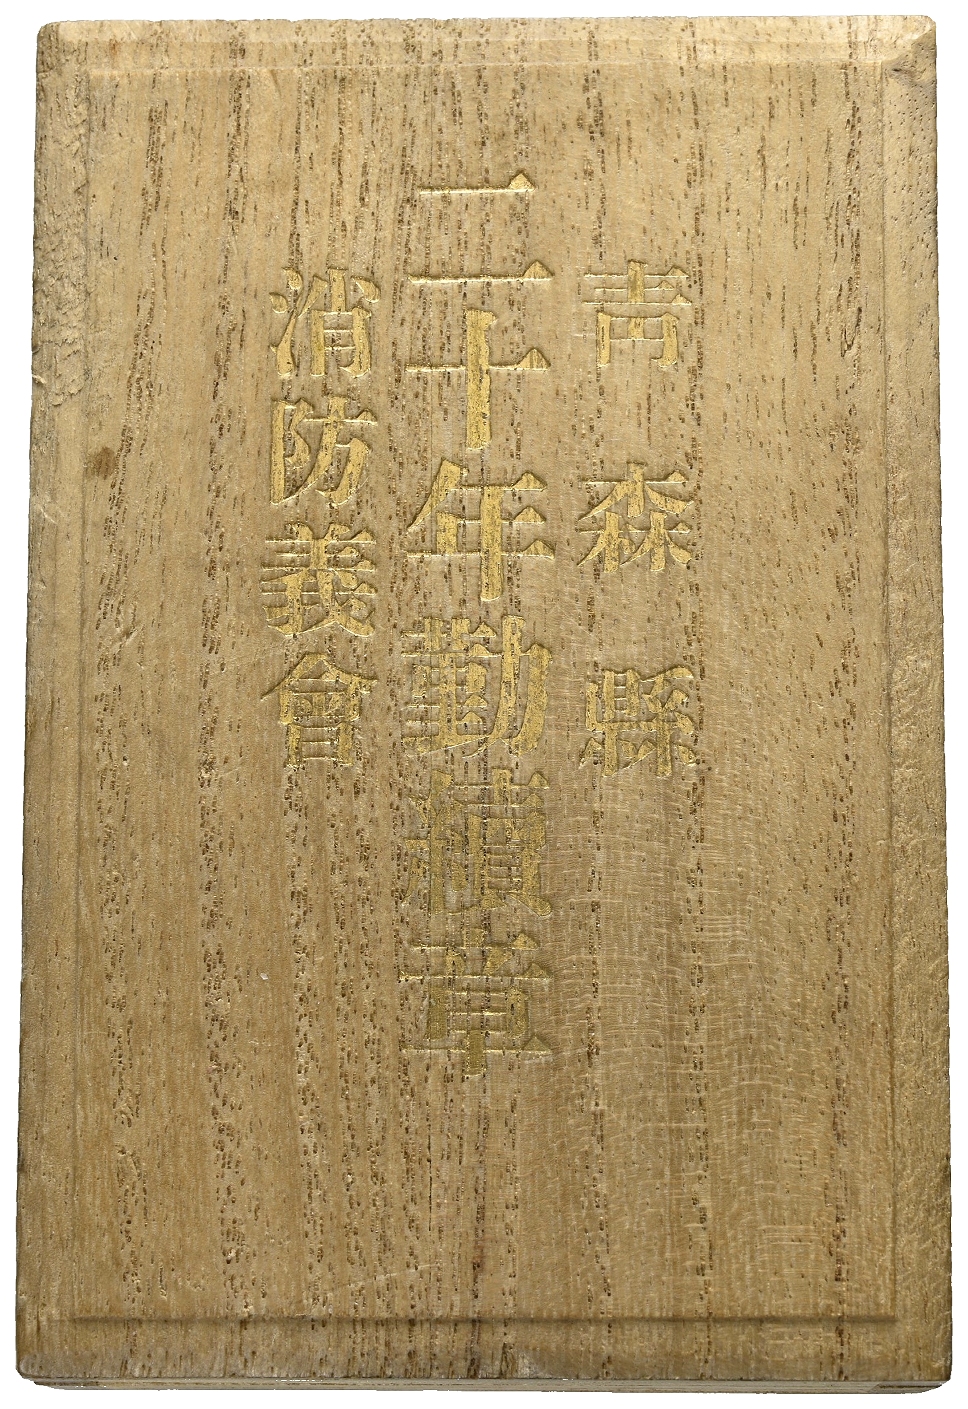 青森縣
二十年勤績章
消防義會